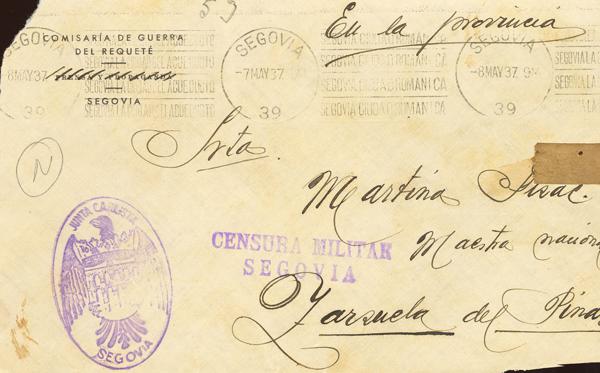 59
En la provincia
COMISARÍA DE GUERRA
DEL REQUETÉ
SEGOVIA
SEGOVIA
8 MAY 37
39
SEGOVIA
-7 MAY 37
39
SEGOVIA CIUDAD ROMANICA
SEGOVIA CIUDAD ROMANICA
SEGOVIA CIUDAD ROMANICA
SEGOVIA CIUDAD ROMANICA
SEGOVIA
-8 MAY 37 9M
39
N
Srta.
Martina Pisac.
Maestra nacion
Zarzuela del Pina
CENSURA MILITAR
SEGOVIA
JUNTA CARLISTA
SEGOVIA